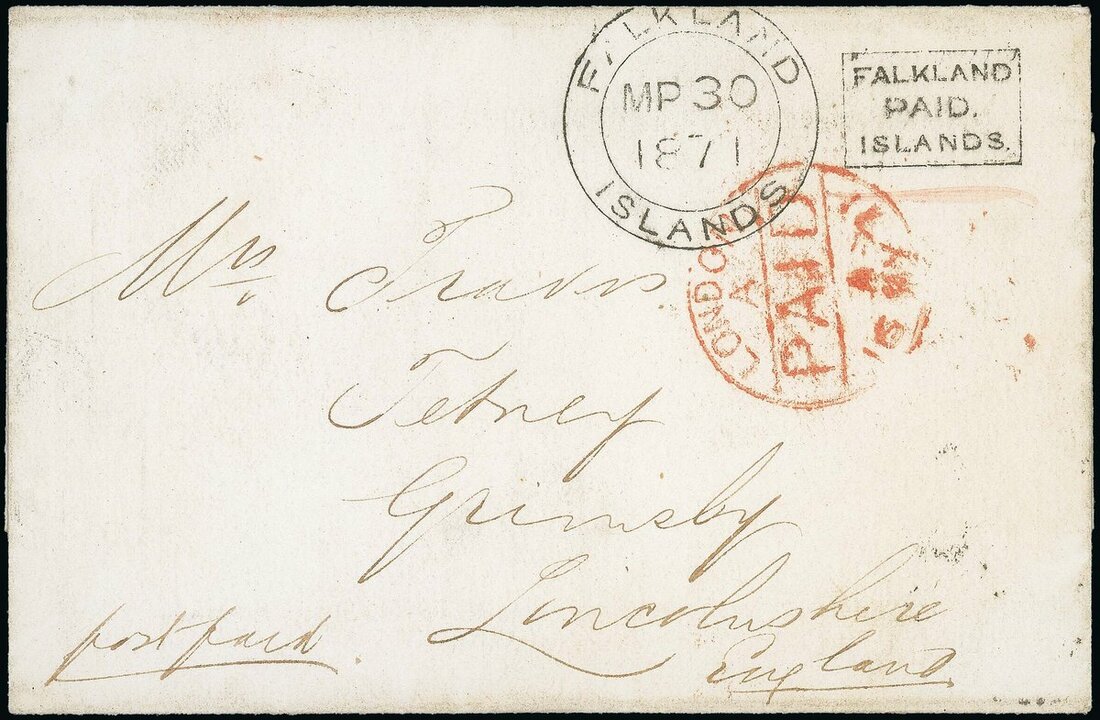 FALKLAND ISLANDS
MR 30
1871
FALKLAND
PAID.
ISLANDS.
LONDON
A
PAID
16 MY
71
Mrs. Travis.
Tetney
Grimsby
Lincolnshire
England
post paid.